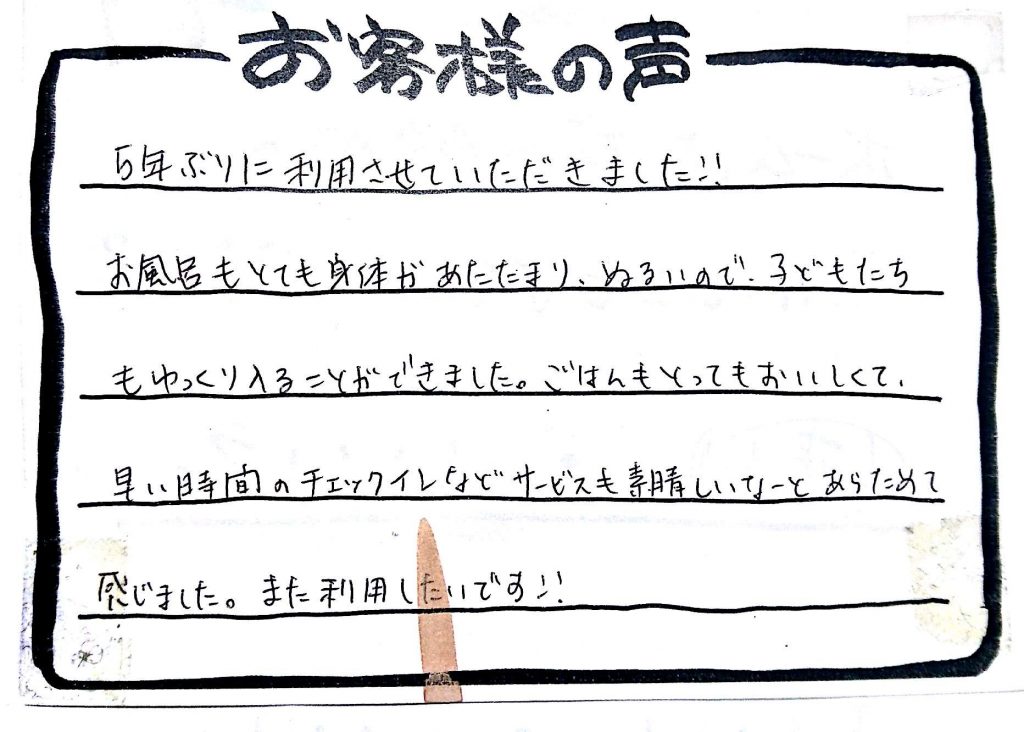 お客様の声
5年ぶりに利用させていただきました!!
お風呂もとても身体があたたまり、ぬるいので、子どもたち
もゆっくり入ることができました。ごはんもとってもおいしくて、
早い時間のチェックインなどサービスも素晴しいなーとあらためて
感じました。また利用したいです!!